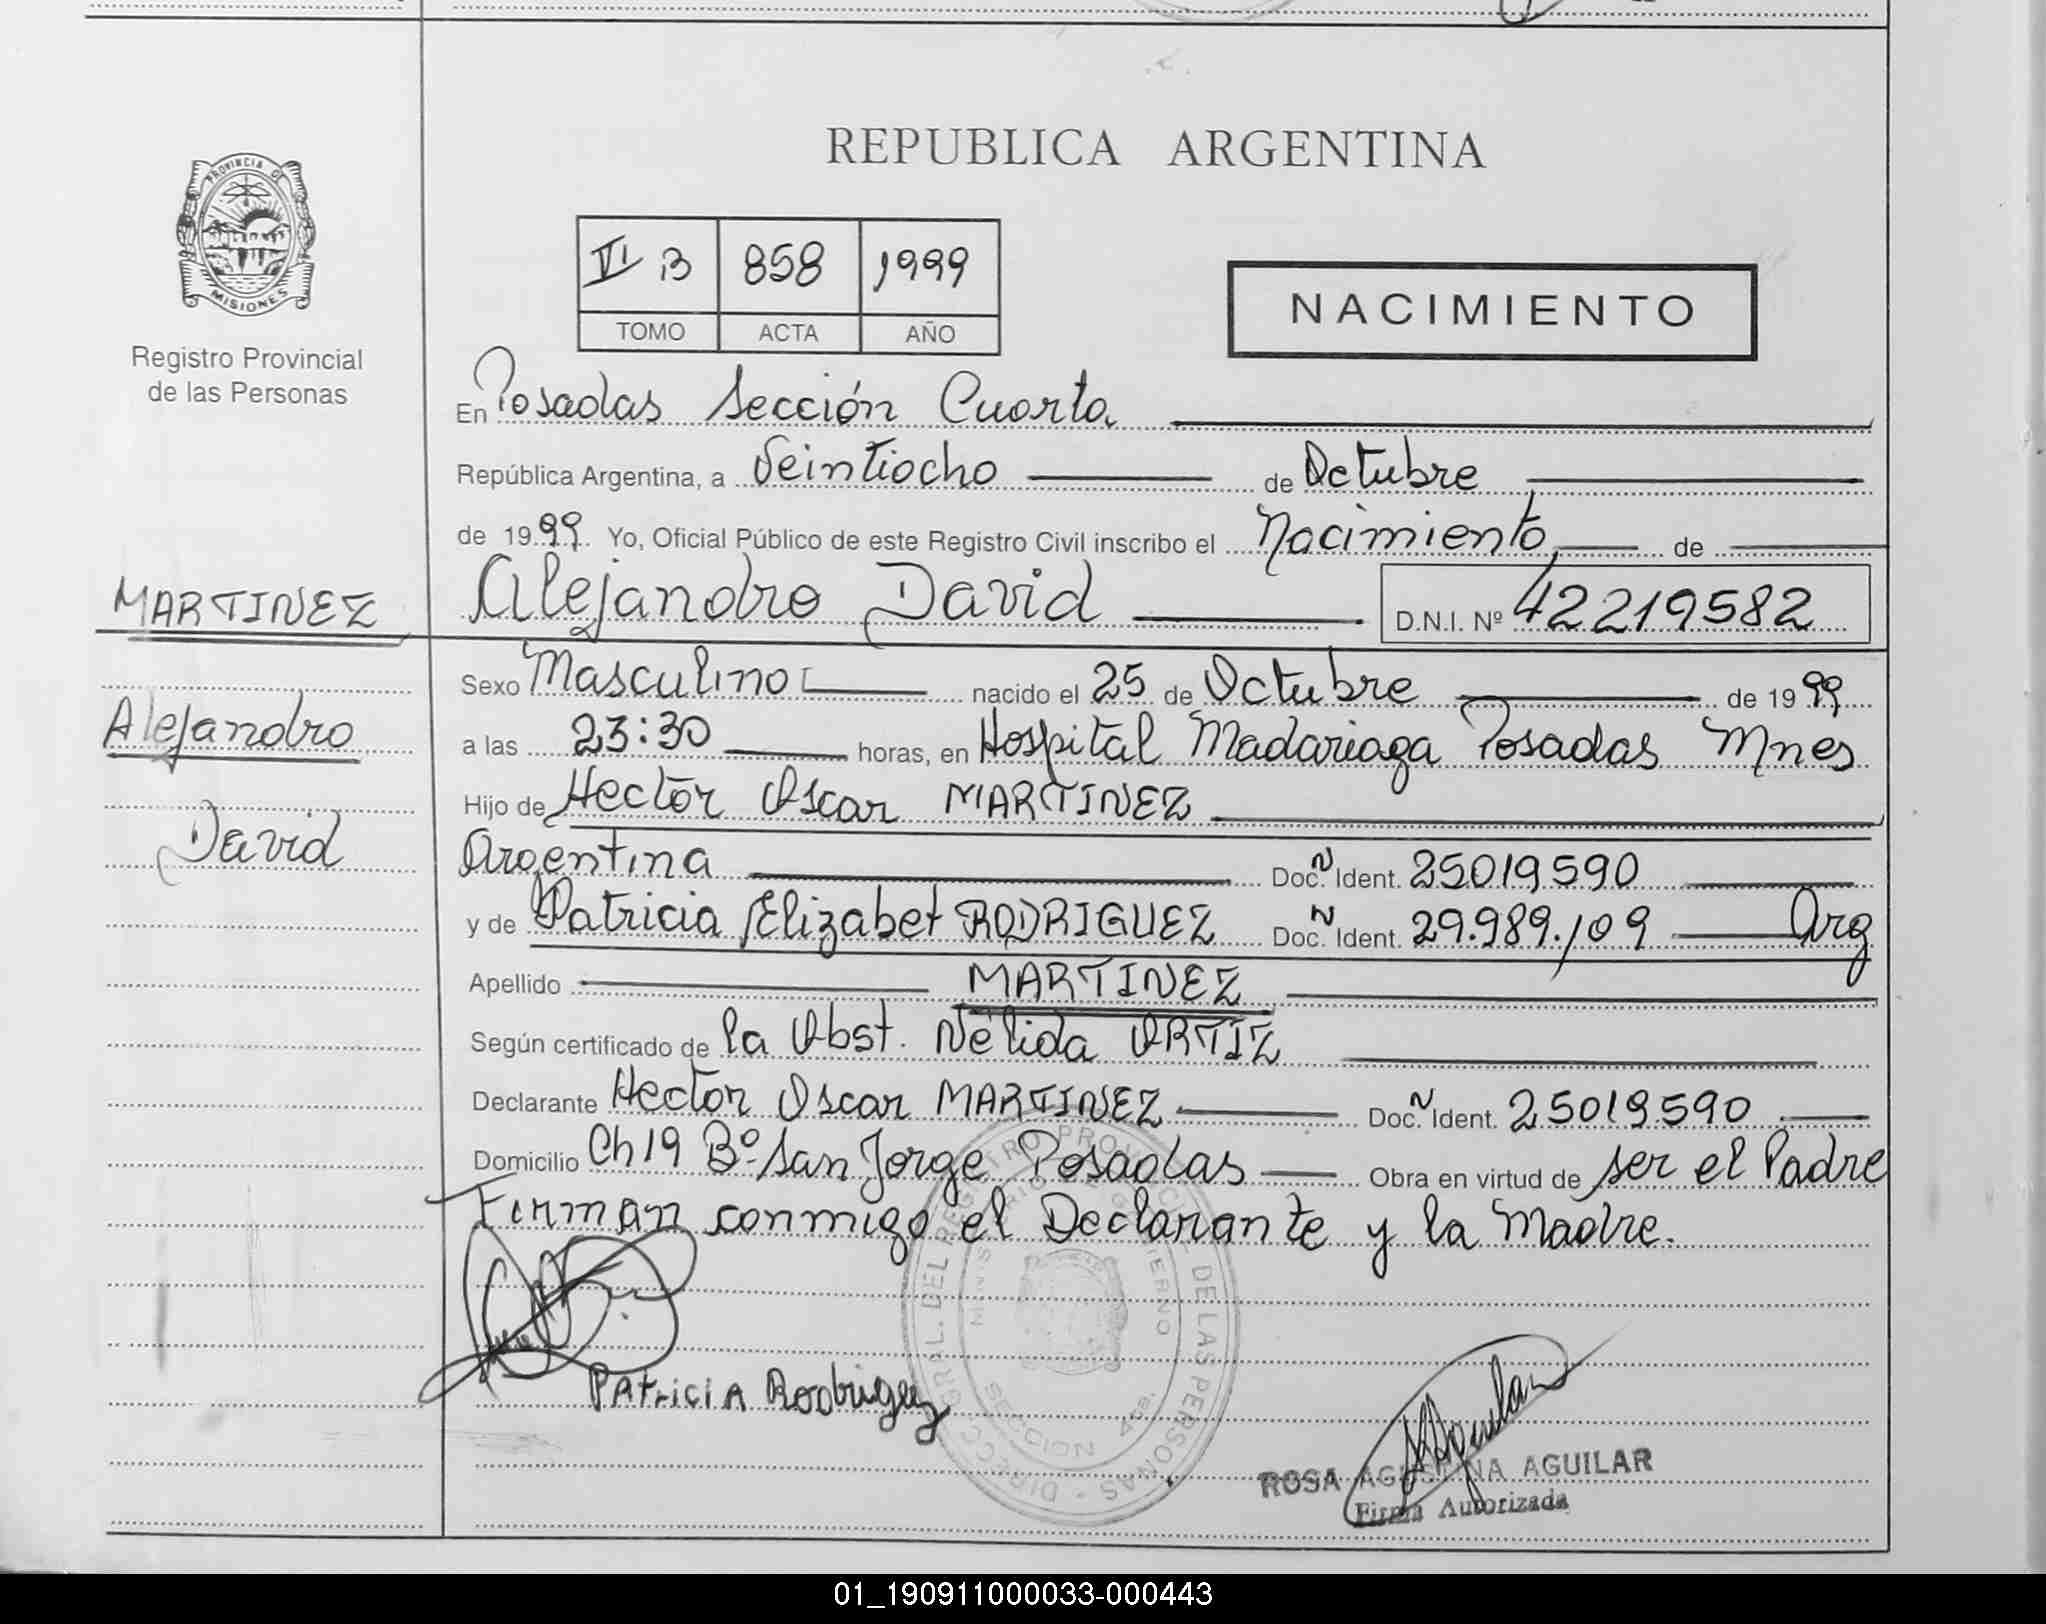 REPUBLICA ARGENTINA
PROVINCIA DE
MISIONES
Registro Provincial
de las Personas
VI B 858 1999
TOMO ACTA AÑO
NACIMIENTO
En Posadas Sección Cuarta
República Argentina, a Veintiocho de Octubre
de 1999 Yo, Oficial Público de este Registro Civil inscribo el Nacimiento, de
MARTINEZ
Alejandro David D.N.I. Nº 42219582
Sexo Masculino nacido el 25 de Octubre de 1999
Alejandro
a las 23:30 horas, en Hospital Madariaga Posadas Mnes
Hijo de Hector Oscar MARTINEZ
David
Argentina Doc. N Ident. 25019590
y de Patricia Elizabet RODRIGUEZ Doc. N Ident. 29.989.109 Arg
Apellido MARTINEZ
Según certificado de la Obst. Nélida ORTIZ
Declarante Hector Oscar MARTINEZ Doc. N Ident. 25019590
Domicilio Ch 19 Bº San Jorge Posadas Obra en virtud de ser el Padre
Firman conmigo el Declarante y la Madre.
DIRECC. GRAL. DEL REGISTRO PROVINCIAL DE LAS PERSONAS
MINISTERIO DE GOBIERNO
SECCION 4ta.
Patricia Rodriguez
RAguilar
ROSA AGUSTINA AGUILAR
Firma Autorizada
01_190911000033-000443